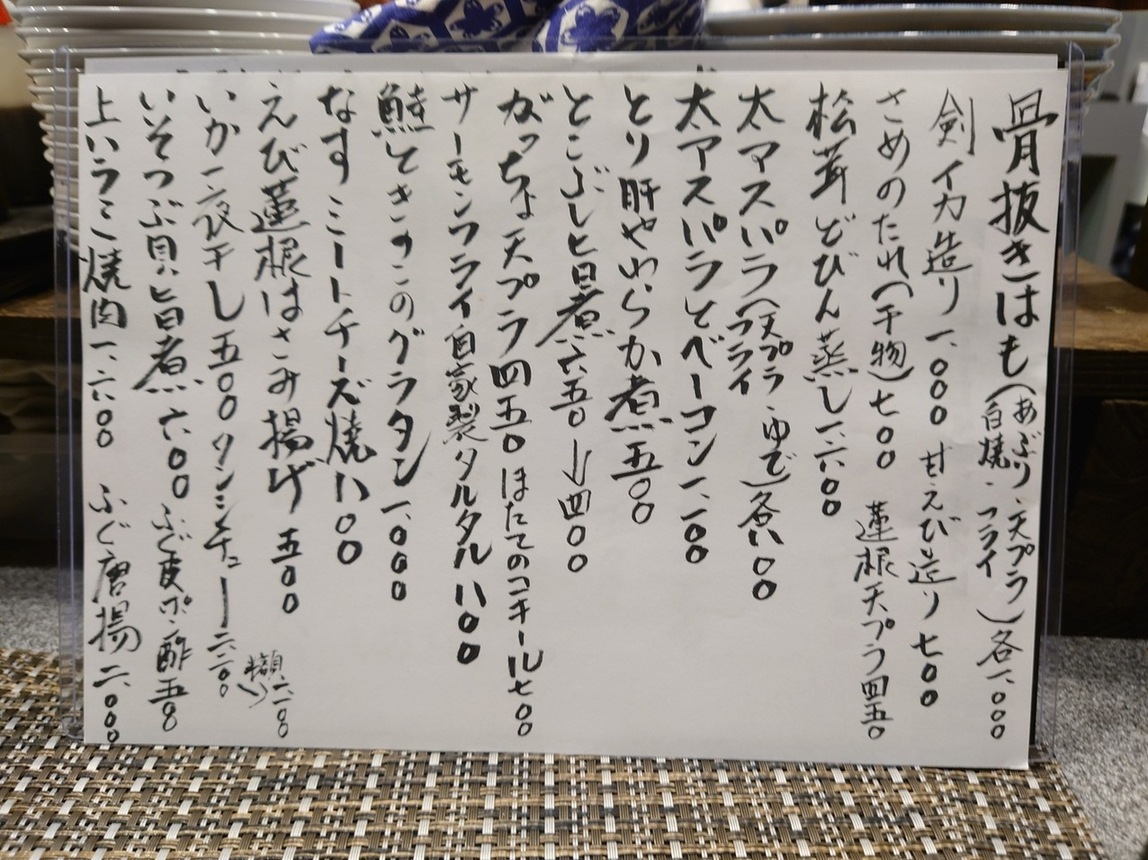 骨抜きはも(あぶり、天プラ、白焼、フライ)各一、〇〇〇
剣イカ造り一、〇〇〇 甘えび造り七〇〇
さめのたれ(干物)七〇〇 蓮根天プラ四五〇
松茸どびん蒸し一、六〇〇
太アスパラ(天プラ、ゆで、フライ)各八〇〇
太アスパラとベーコン一、一〇〇
とり肝やわらか煮五〇〇
とこぶし旨煮六五〇→四〇〇
がっちょ天プラ四五〇 ほたてのコキール七〇〇
サーモンフライ自家製タルタル八〇〇
鮭ときのこのグラタン一、〇〇〇
なすミートチーズ焼八〇〇
えび蓮根はさみ揚げ五〇〇
いか一夜干し五〇〇 タンシチュー二、二〇〇
いそつぶ貝旨煮六〇〇 ふぐ皮ポン酢五〇〇
上ハラミ焼肉一、六〇〇 ふぐ唐揚二、〇〇〇